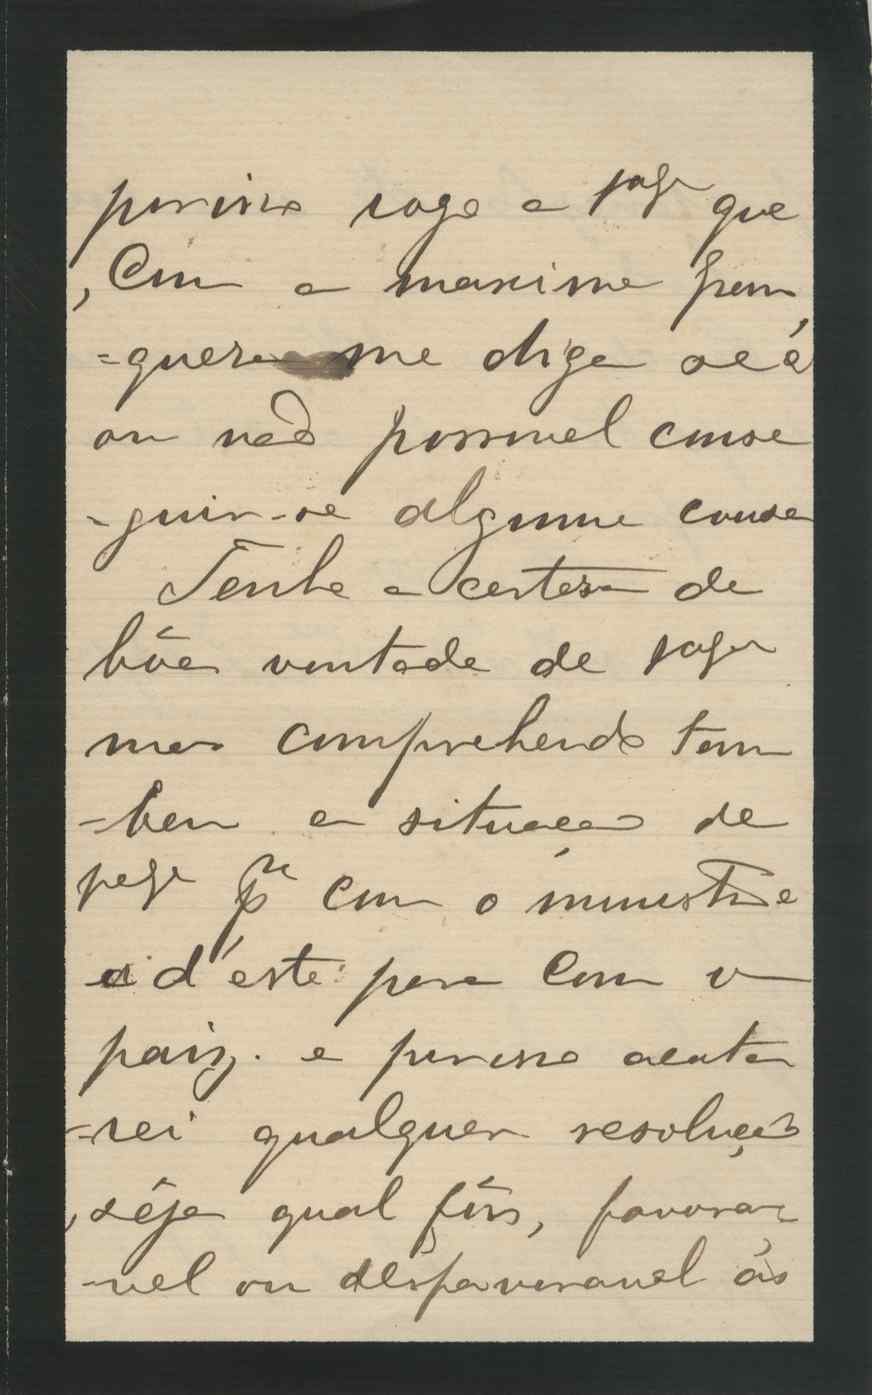 porisso rogo a que
, Com a maxima fran
=queza me diga se é
ou não possivel conse
-guir-se alguma cousa
Tenho a certeza de
bôa vontade de
mas comprehendo tam
-bem a situacão de
pª com o ministro e
a d'este para com o
paiz. e porisso acata
-rei qualquer resolução
, sêja qual fôr, favora
-vel ou desfavoravel ás